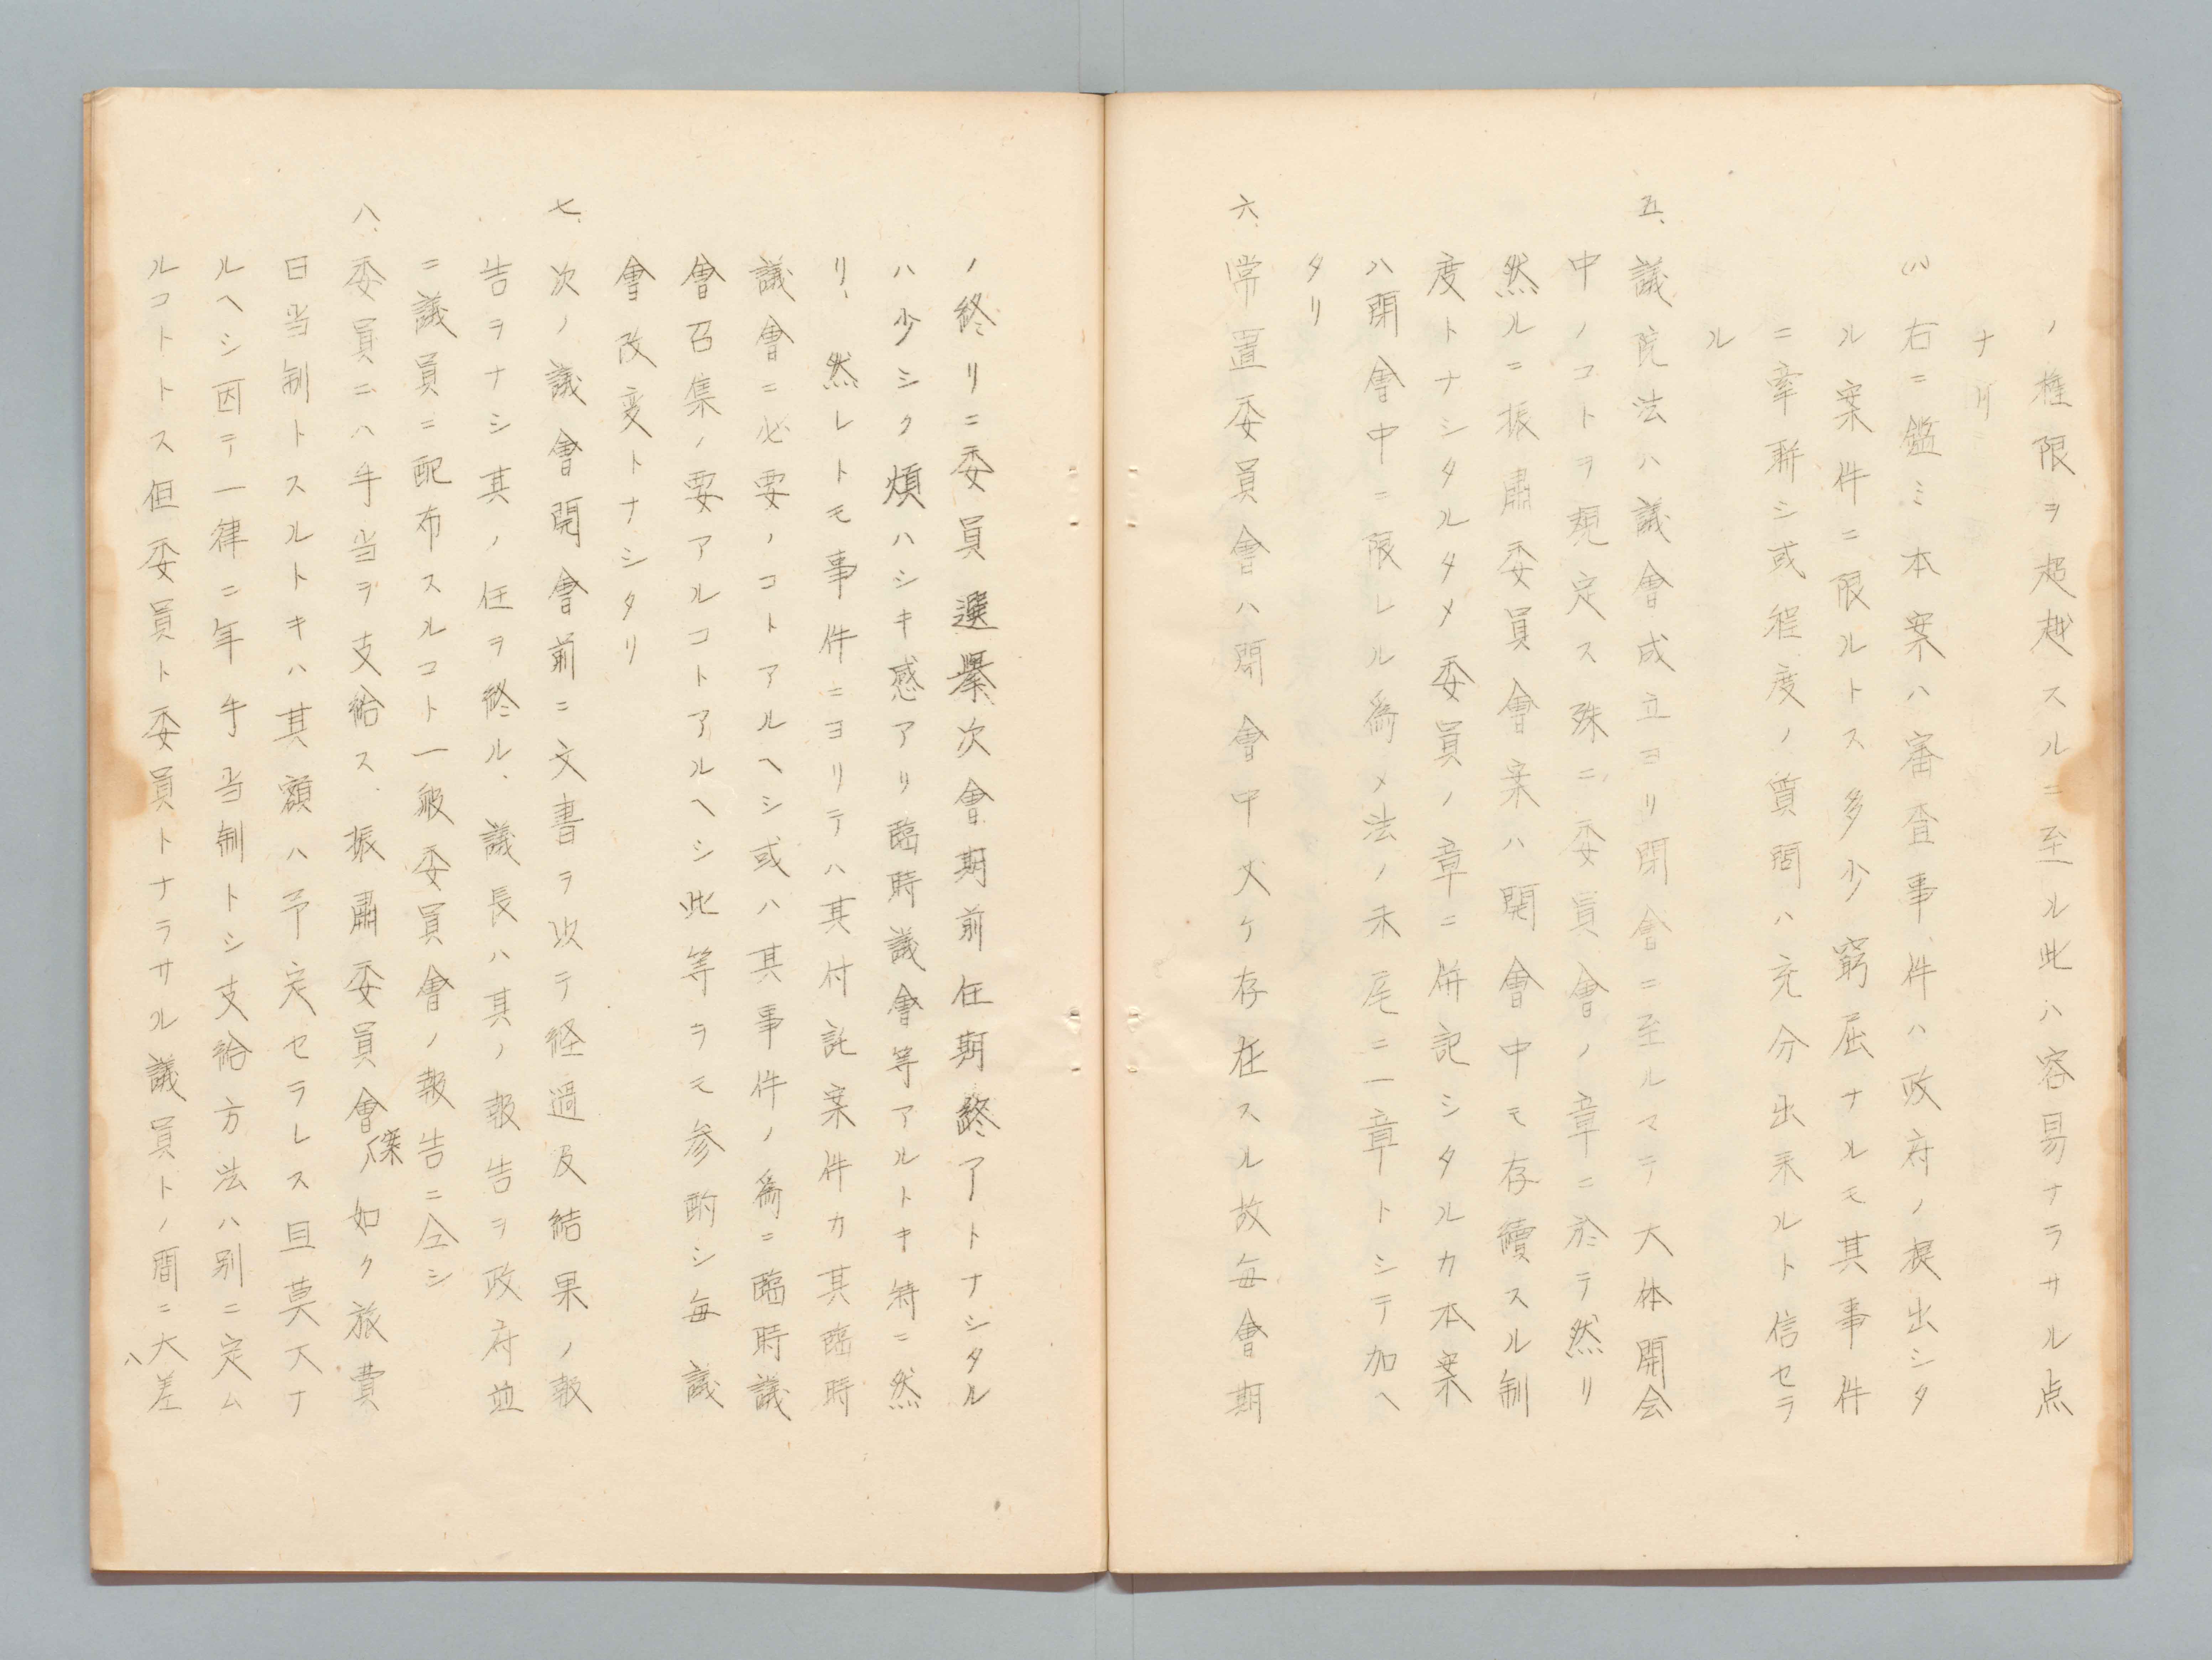 ノ権限ヲ超越スルニ至ル此ハ容易ナラサル点
ナリ
(ハ)右ニ鑑ミ本案ハ審査事件ハ政府ノ提出シタ
ル案件ニ限ルトス多少窮屈ナルモ其事件
ニ牽聯シ或程度ノ質問ハ充分出来ルト信セラ
ル
五、議院法ハ議會成立ヨリ閉會ニ至ルマテ大体開会
中ノコトヲ規定ス殊ニ委員會ノ章ニ於テ然リ
然ルニ振肅委員會案ハ閉會中モ存續スル制
度トナシタルタメ委員ノ章ニ併記シタルカ本案
ハ閉會中ニ限レル為メ法ノ末尾ニ一章トシテ加ヘ
タリ
六、常置委員會ハ閉會中丈ケ存在スル故毎會期
ノ終リニ委員選擧次會期前任期終了トナシタル
ハ少シク煩ハシキ感アリ臨時議會等アルトキ特ニ然
リ、然レトモ事件ニヨリテハ其付託案件カ其臨時
議會ニ必要ノコトアルヘシ或ハ其事件ノ為ニ臨時議
會召集ノ要アルコトアルヘシ此等ヲモ参酌シ毎議
會改変トナシタリ
七、次ノ議會開會前ニ文書ヲ以テ経過及結果ノ報
告ヲナシ其ノ任ヲ終ル、議長ハ其ノ報告ヲ政府並
ニ議員ニ配布スルコト一般委員會ノ報告ニ仝シ
八、委員ニハ手当ヲ支給ス、振肅委員會案ノ如ク旅費
日当制トスルトキハ其額ハ予定セラレス且莫大ナ
ルヘシ因テ一律ニ年手当制トシ支給方法ハ別ニ定ム
ルコトトス但委員ト委員トナラサル議員トノ間ニハ大差